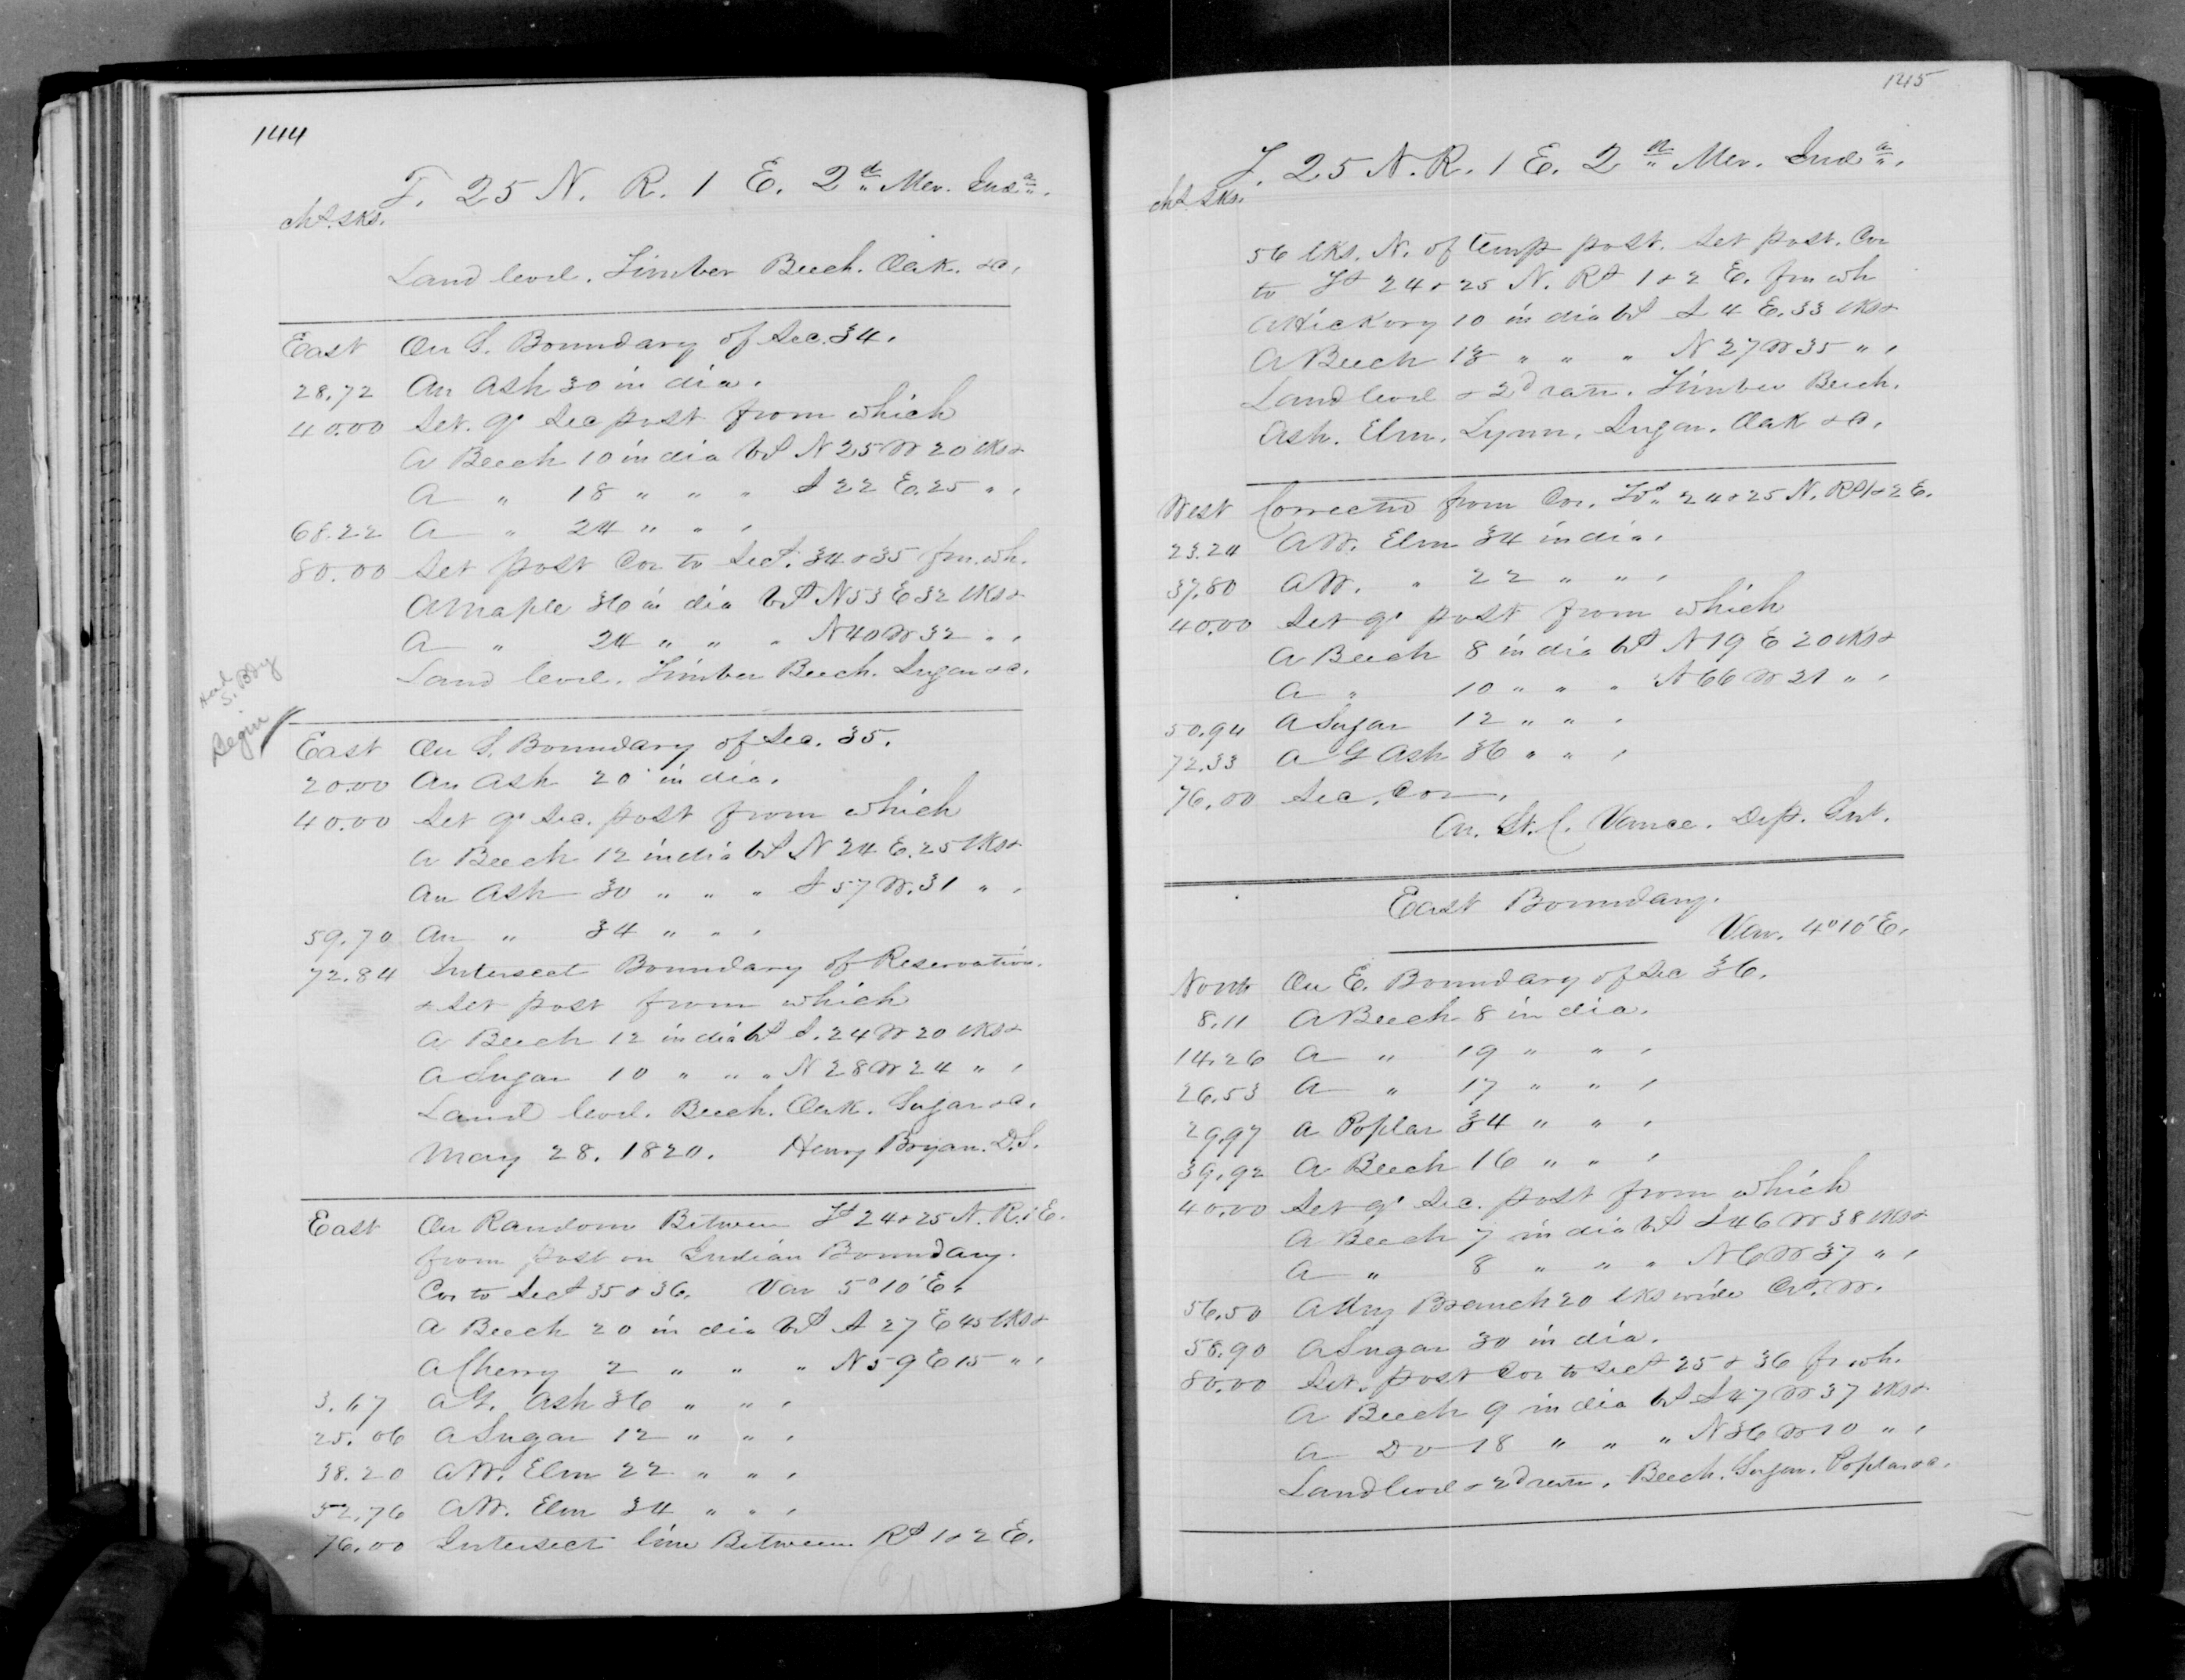 144
T. 25 N. R. 1 E. 2nd Mer. Inda.
chs. lks.
Land level. Timber Beech. Oak. &c.
East On S. Boundary of Sec. 34.
28.72 An Ash 30 in dia.
40.00 Set. qr Sec post from which
A Beech 10 in dia bs N 25 W 20 lks &
A " 18 " " " S 22 E. 25 " "
68.22 A " 24 " " "
80.00 Set post Cor to Secs. 34 & 35 fm. wh.
A Maple 36 in dia bs N 53 E 32 lks &
A " 24 " " " N 40 W 32 " "
Land level. Timber Beech. Sugar &c.
And
S. Bdy
Begin
East On S. Boundary of Sec. 35.
20.00 An Ash 20 in dia.
40.00 Set qr Sec. post from which
A Beech 12 in dia bs N 24 E. 25 lks &
An Ash 30 " " " S 57 W. 31 " "
59.70 An " 34 " " "
72.84 Intersect Boundary of Reservation.
& Set post from which
A Beech 12 in dia bs S. 24 W 20 lks &
A Sugar 10 " " " N 28 W 24 " "
Land level. Beech. Oak. Sugar &c.
May 28. 1820. Henry Bryan. D.S.
East On Random Between Ts 24 & 25 N. R. 1 E.
from post on Indian Boundary.
Cor to Secs 35 & 36. Var 5° 10' E.
A Beech 20 in dia bs S 27 E 45 lks &
A Cherry 2 " " " N 59 E 15 " "
3.67 A G. Ash 36 " " "
25.06 A Sugar 12 " " "
38.20 A W. Elm 22 " " "
52.76 A W. Elm 34 " " "
76.00 Intersect line Between Rs 1 & 2 E.
145
T. 25 N. R. 1 E. 2nd Mer. Inda.
chs lks.
56 lks. N. of temp post. Set post. Cor
to Ts 24 & 25 N. Rs 1 & 2 E. fm wh
A Hickory 10 in dia bs S 4 E. 33 lks &
A Beech 13 " " " N 27 W 35 " "
Land level & 2d rate. Timber Beech.
Ash. Elm. Lynn. Sugar. Oak &c.
West Corrected from Cor. Tps 24 & 25 N. Rs 1 & 2 E.
23.24 A W. Elm 34 in dia.
37.80 A W. " 22 " " "
40.00 Set qr post from which
A Beech 8 in dia bs N 19 E 20 lks &
A " 10 " " " S 66 W 21 " "
50.94 A Sugar 12 " " "
72.33 A G Ash 36 " " "
76.00 Sec. Cor.
St. C. Vance. Dep. Sur.
East Boundary.
Var. 4° 10' E.
North On E. Boundary of Sec 36.
8.11 A Beech 8 in dia.
14.26 A " 19 " " "
26.53 A " 17 " " "
29.97 A Poplar 34 " " "
39.92 A Beech 16 " " "
40.00 Set qr Sec. post from which
A Beech 7 in dia bs S 46 W 38 lks &
A " 8 " " " N 6 W 37 " "
56.50 A dry Branch 20 lks wide Crs. W.
58.90 A Sugar 30 in dia.
80.00 Set. post Cor to Secs 25 & 36 fr wh.
A Beech 9 in dia bs S 47 W 37 lks &
A Do 18 " " " N 36 W 10 " "
Land level & 2d rate. Beech. Sugar. Poplar &c.